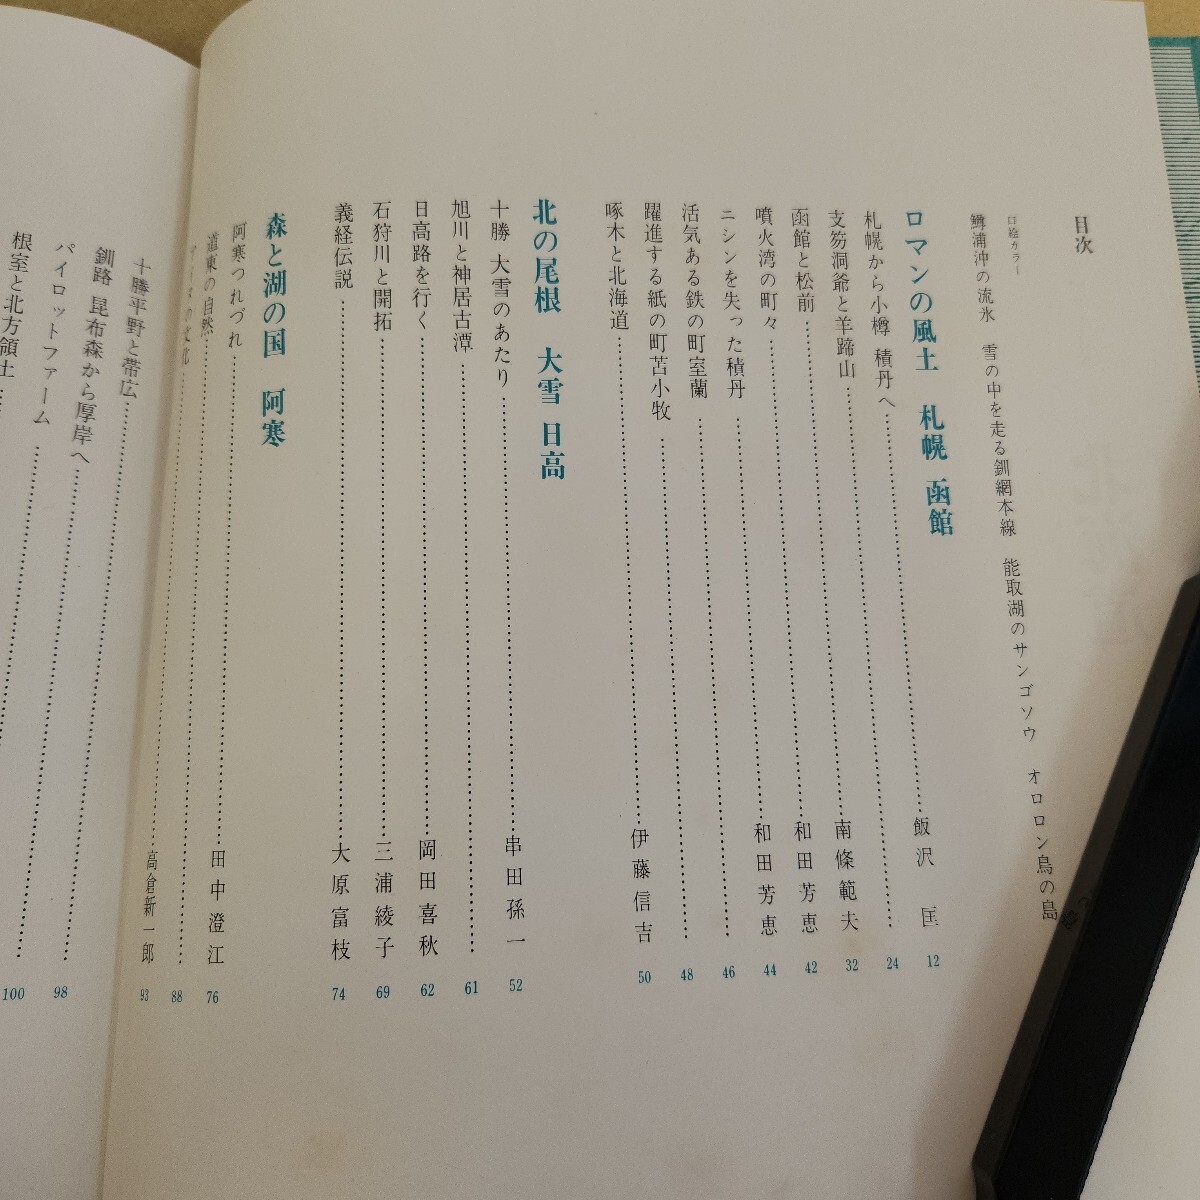 目次
口絵カラー
鱒浦沖の流氷　雪の中を走る釧網本線　能取湖のサンゴソウ　オロロン鳥の島
ロマンの風土　札幌 函館
札幌から小樽 積丹へ……飯沢 匡 12
支笏洞爺と羊蹄山……24
函館と松前……南條範夫 32
噴火湾の町々……和田芳恵 42
ニシンを失った積丹……和田芳恵 44
活気ある鉄の町室蘭……46
躍進する紙の町苫小牧……48
啄木と北海道……伊藤信吉 50
北の尾根　大雪 日高
十勝 大雪のあたり……串田孫一 52
旭川と神居古潭……61
日高路を行く……岡田喜秋 62
石狩川と開拓……三浦綾子 69
義経伝説……大原富枝 74
森と湖の国　阿寒
阿寒つれづれ……田中澄江 76
道東の自然……88
の文化……高倉新一郎 93
十勝平野と帯広……
釧路 昆布森から厚岸へ……98
パイロットファーム……100
根室と北方領土……